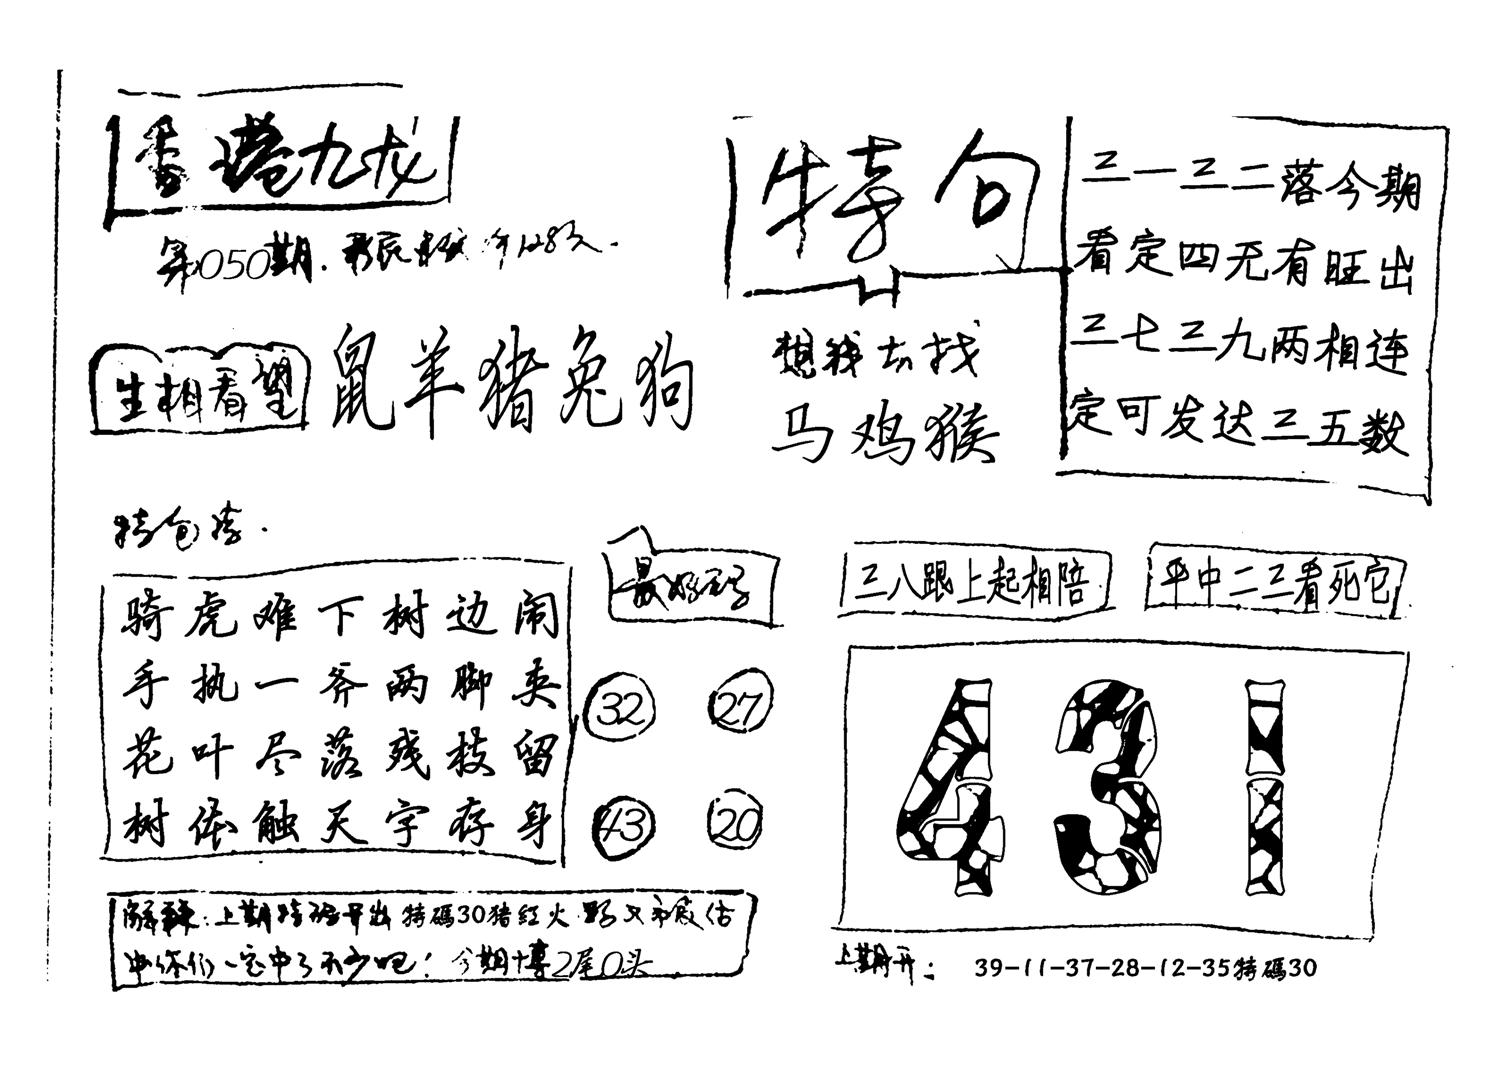 香港九龙
第050期.
特句
三一三二落今期
看定四无有旺出
三七三九两相连
定可发达三五数
生相看望
鼠羊猪兔狗
想我去找
马鸡猴
骑虎难下树边闹
手执一斧两脚夹
花叶尽落残枝留
树体触天字存身
32 27
43 20
三八跟上起相陪
平中二三看死它
431
上期特码开出特碼30猪红火
你们一定中了不少吧！今期十博2尾0头
上期开：
39-11-37-28-12-35特碼30